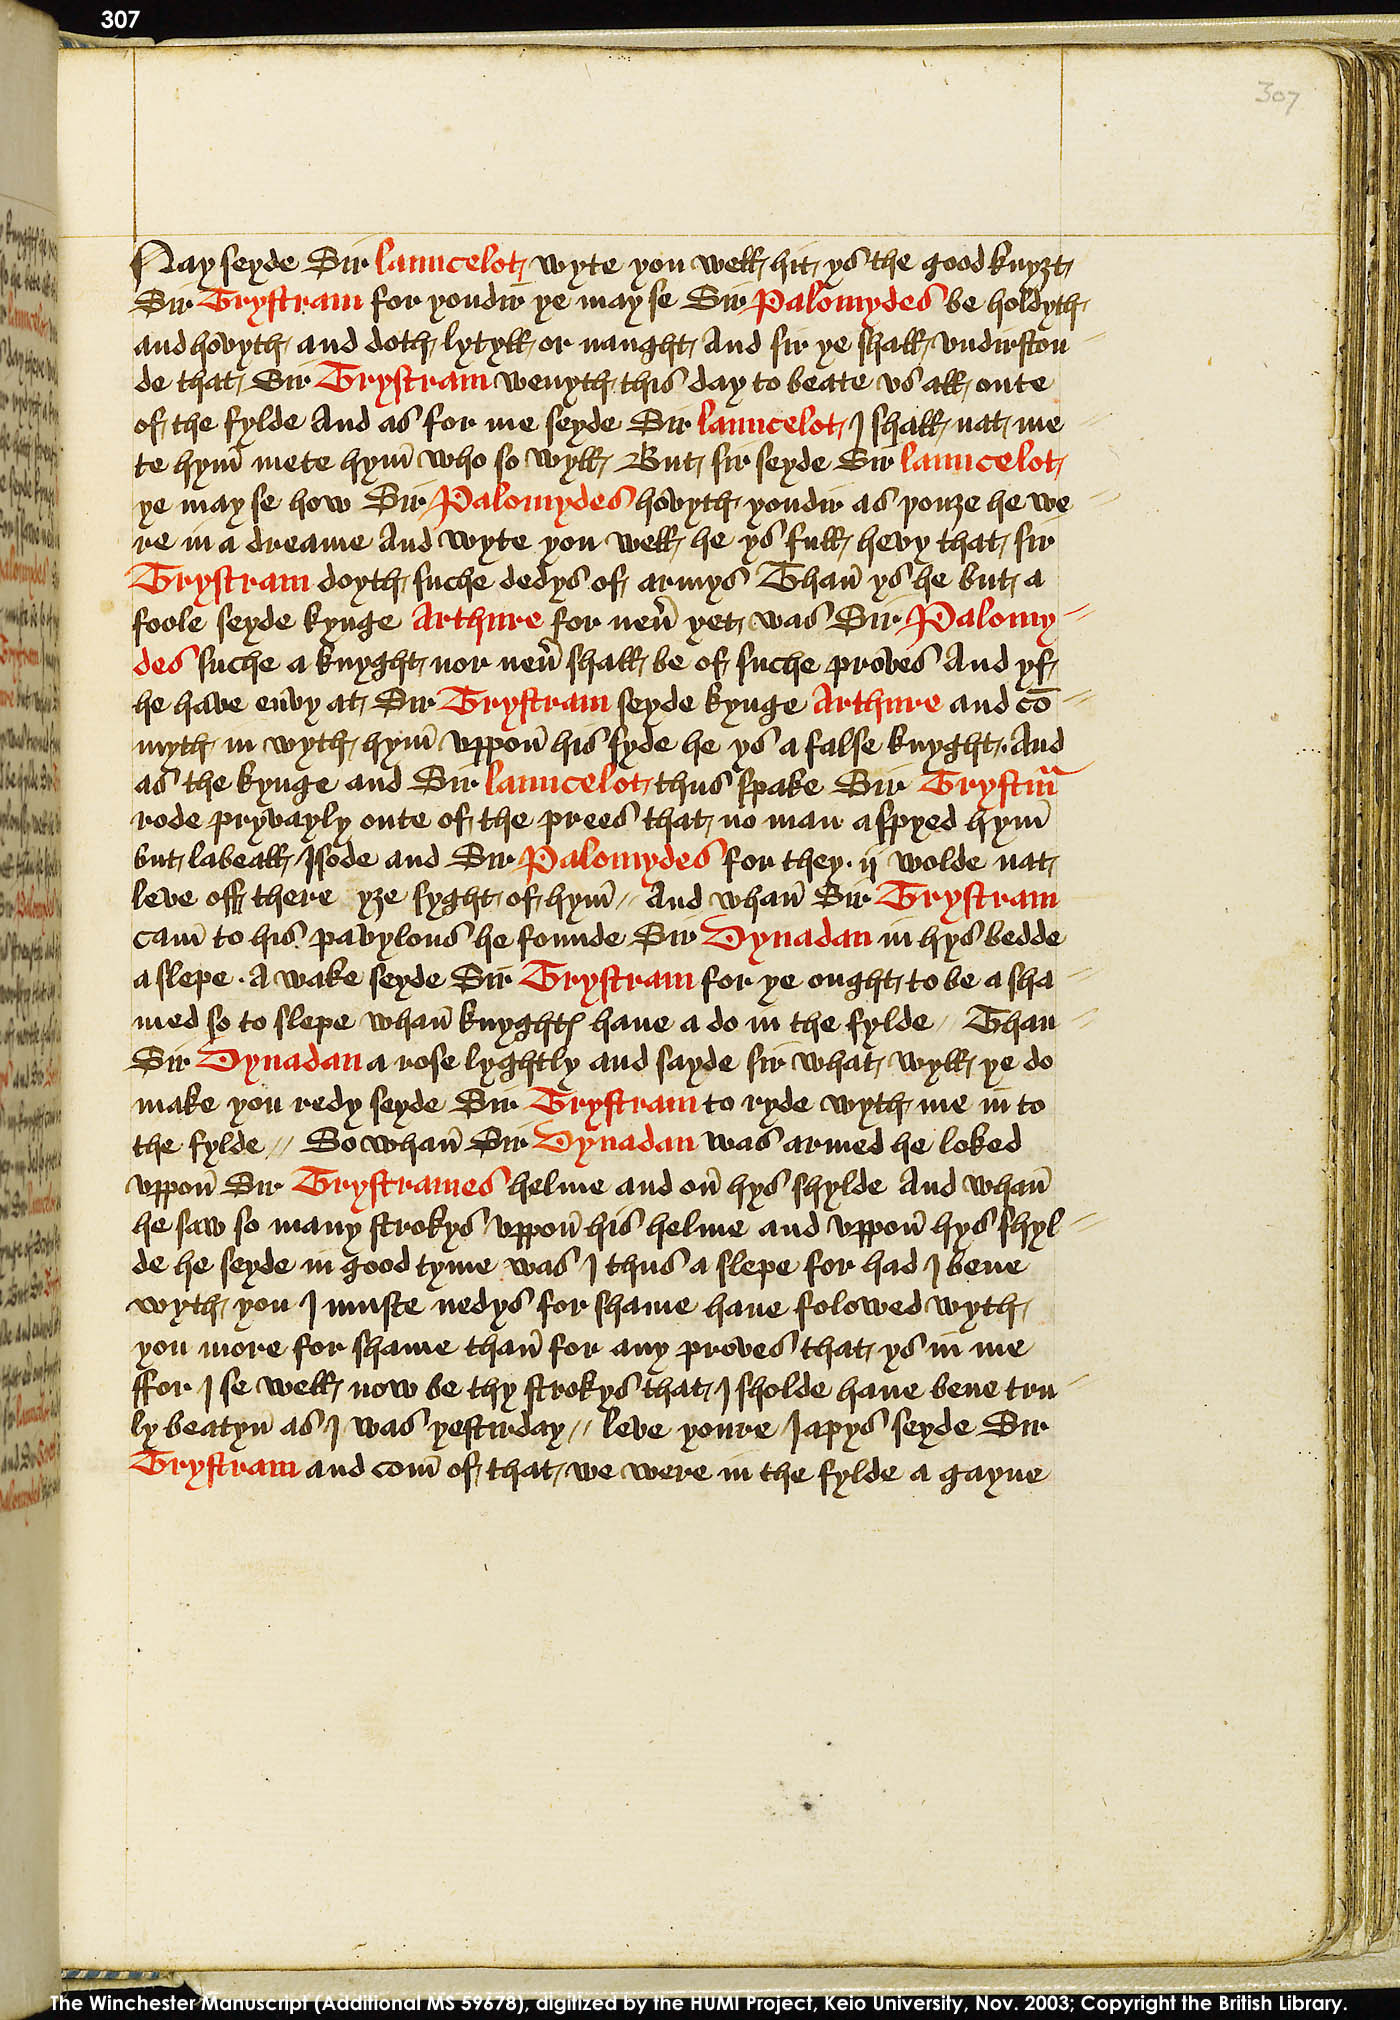 307
307
Nay seyde Sir launcelot wyte you well hit ys the good knyȝt
Sir Trystram for yondir ye may se Sir Palomydes be holdyth
and hovyth and doth lytyll or naught And sir ye shall vndirston
de that Sir Trystram wenyth this day to beate vs all oute
of the fylde And as for me seyde Sir launcelot I shall nat me
te hym̄ mete hym̄ who so wyll But sir seyde Sir launcelot
ye may se how Sir Palomydes hovyth yondir as þouȝe he we
re in a dreame And wyte you well he ys full hevy that sir
Trystram doyth suche dedys of armys Thañ ys he but a
foole seyde kynge Arthure for neu̾ yet was Sir Palomy
des suche a knyght nor neu̾ shall be of suche proves And yf
he have envy at Sir Trystram seyde kynge Arthure and cō
myth in wyth hym̄ vppoñ his syde he ys a false knyght. And
as the kynge and Sir launcelot thus spake Sir Trystrm̃
rode pryvayly oute of the prees that no man aspyed hym̄
but labeall Isode and Sir Palomydes for they. ij wolde nat
leve off there yȝe syght of hym̄ // And whañ Sir Trystram
cam̄ to his pavylons he founde Sir Dynadan in hys bedde
a slepe. A wake seyde Sir Trystram for ye ought to be a sha
med so to slepe whañ knyghtꝭ haue a do in the fylde // Than
Sir Dynadan a rose lyghtly and sayde sir what wyll ye do
make you redy seyde Sir Trystram to ryde wyth me in to
the fylde // So whañ Sir Dynadan was armed he loked
vppoñ Sir Trystrames helme and oñ hys shylde And whañ
he saw so many strokys vppoñ his helme and vppoñ hys shyl
de he seyde in good tyme was I thus a slepe for had I bene
wyth you I muste nedys for shame haue folowed wyth
you more for shame thañ for any proves that ys in me
ffor I se well now be thy strokys that I sholde haue bene tru
ly beatyñ as I was yestirday // leve youre Iapys seyde Sir
Trystram and com̄ of that we were in the fylde a gayne
The Winchester Manuscript (Additional MS 59678), digitized by the HUMI Project, Keio University, Nov. 2003; Copyright the British Library.